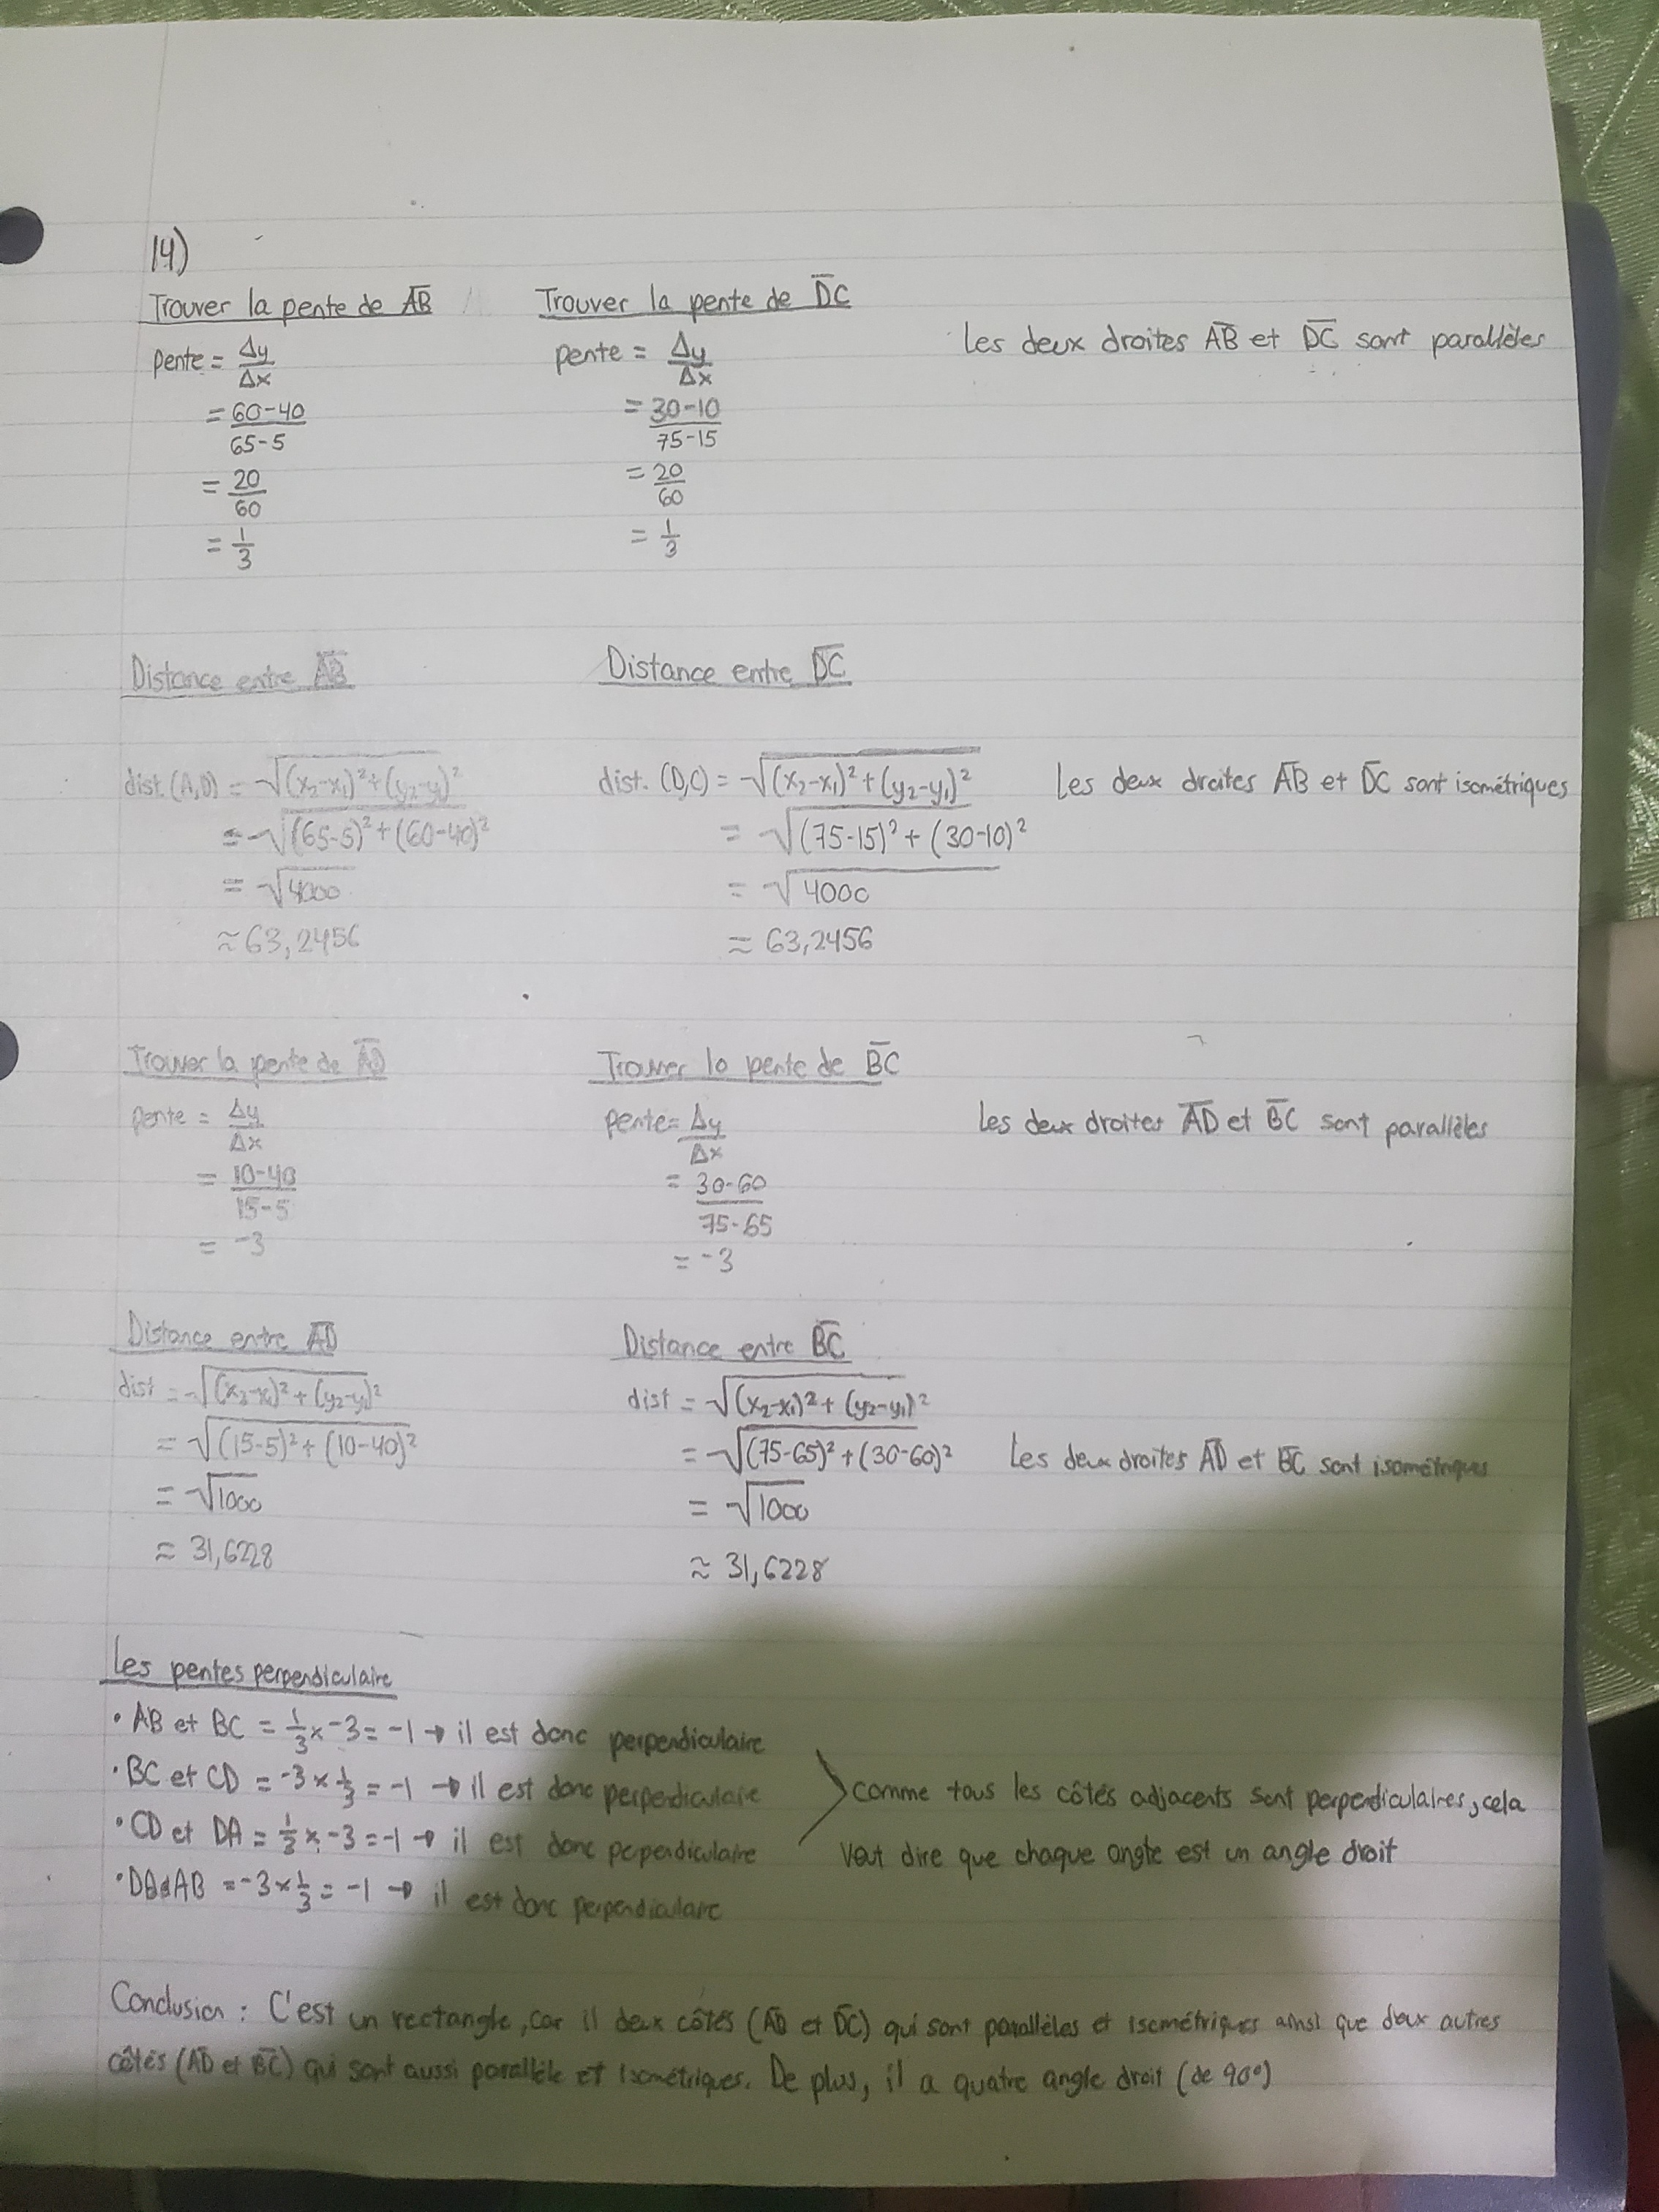 14)
Trouver la pente de A̅B̅
pente = Δy/Δx
= (60-40)/(65-5)
= 20/60
= 1/3
Trouver la pente de D̅C̅
pente = Δy/Δx
= (30-10)/(75-15)
= 20/60
= 1/3
Les deux droites A̅B̅ et D̅C̅ sont parallèles
Distance entre A̅B̅
dist. (A,B) = √((x₂-x₁)²+(y₂-y₁)²)
= √((65-5)²+(60-40)²)
= √4000
≈ 63,2456
Distance entre D̅C̅
dist. (D,C) = √((x₂-x₁)²+(y₂-y₁)²)
= √((75-15)²+(30-10)²)
= √4000
≈ 63,2456
Les deux droites A̅B̅ et D̅C̅ sont isométriques
Trouver la pente de A̅D̅
pente = Δy/Δx
= (10-40)/(15-5)
= -3
Trouver la pente de B̅C̅
pente = Δy/Δx
= (30-60)/(75-65)
= -3
Les deux droites A̅D̅ et B̅C̅ sont parallèles
Distance entre A̅D̅
dist = √((x₂-x₁)²+(y₂-y₁)²)
= √((15-5)²+(10-40)²)
= √1000
≈ 31,6228
Distance entre B̅C̅
dist = √((x₂-x₁)²+(y₂-y₁)²)
= √((75-65)²+(30-60)²)
= √1000
≈ 31,6228
Les deux droites A̅D̅ et B̅C̅ sont isométriques
Les pentes perpendiculaire
• AB et BC = 1/3 x -3 = -1 → il est donc perpendiculaire
• BC et CD = -3 x 1/3 = -1 → il est donc perpendiculaire
• CD et DA = 1/3 x -3 = -1 → il est donc perpendiculaire
• DA et AB = -3 x 1/3 = -1 → il est donc perpendiculaire
Comme tous les côtés adjacents sont perpendiculaires, cela
veut dire que chaque angle est un angle droit
Conclusion : C'est un rectangle, car il deux côtés (A̅B̅ et D̅C̅) qui sont parallèles et isométriques ainsi que deux autres
côtés (A̅D̅ et B̅C̅) qui sont aussi parallèle et isométriques. De plus, il a quatre angle droit (de 90°)